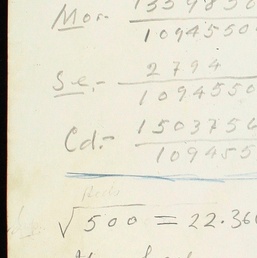 Mor. 1359850
1094550
Se.- 2794
1094550
Cd.- 1503756
109455
√500 = 22.360